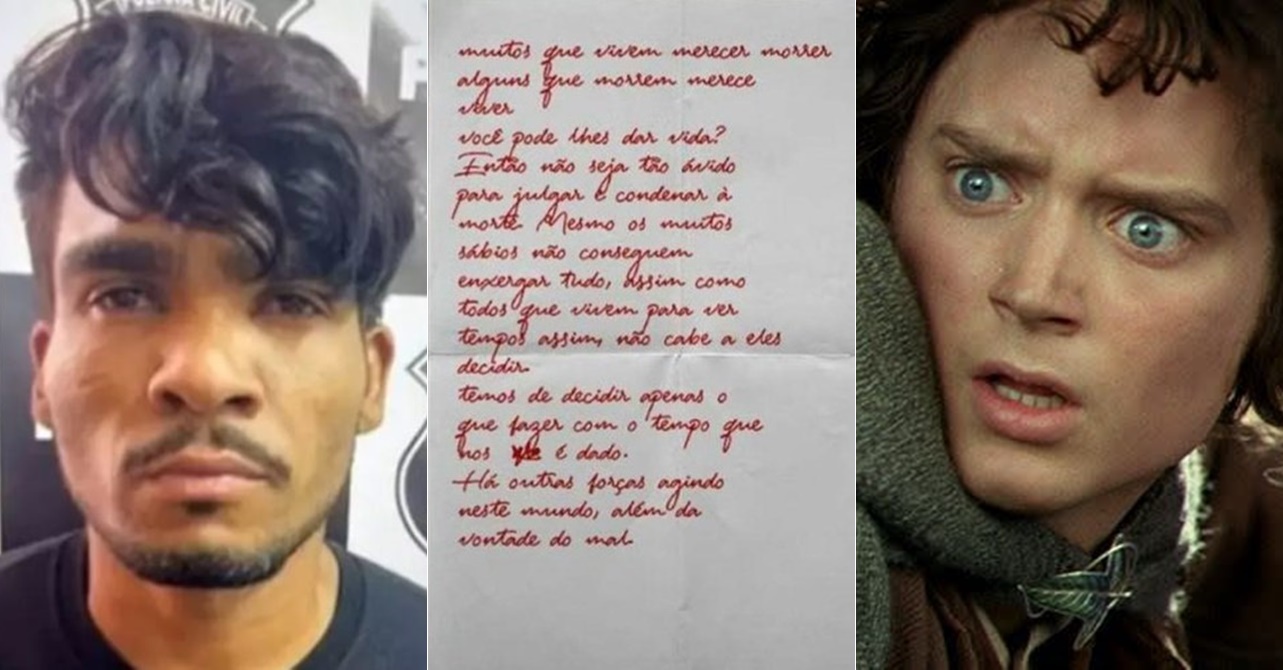 POLÍCIA CIVIL
muitos que vivem merecer morrer
alguns que morrem merece
viver
você pode lhes dar vida?
Então não seja tão ávido
para julgar e condenar à
morte. Mesmo os muitos
sábios não conseguem
enxergar tudo, assim como
todos que vivem para ver
tempos assim, não cabe a eles
decidir.
temos de decidir apenas o
que fazer com o tempo que
nos é dado.
Há outras forças agindo
neste mundo, além da
vontade do mal.